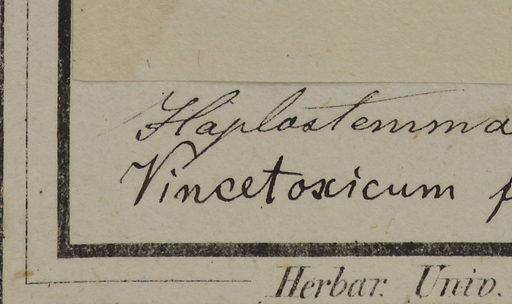 Haplostemma
Vincetoxicum
Herbar. Univ.